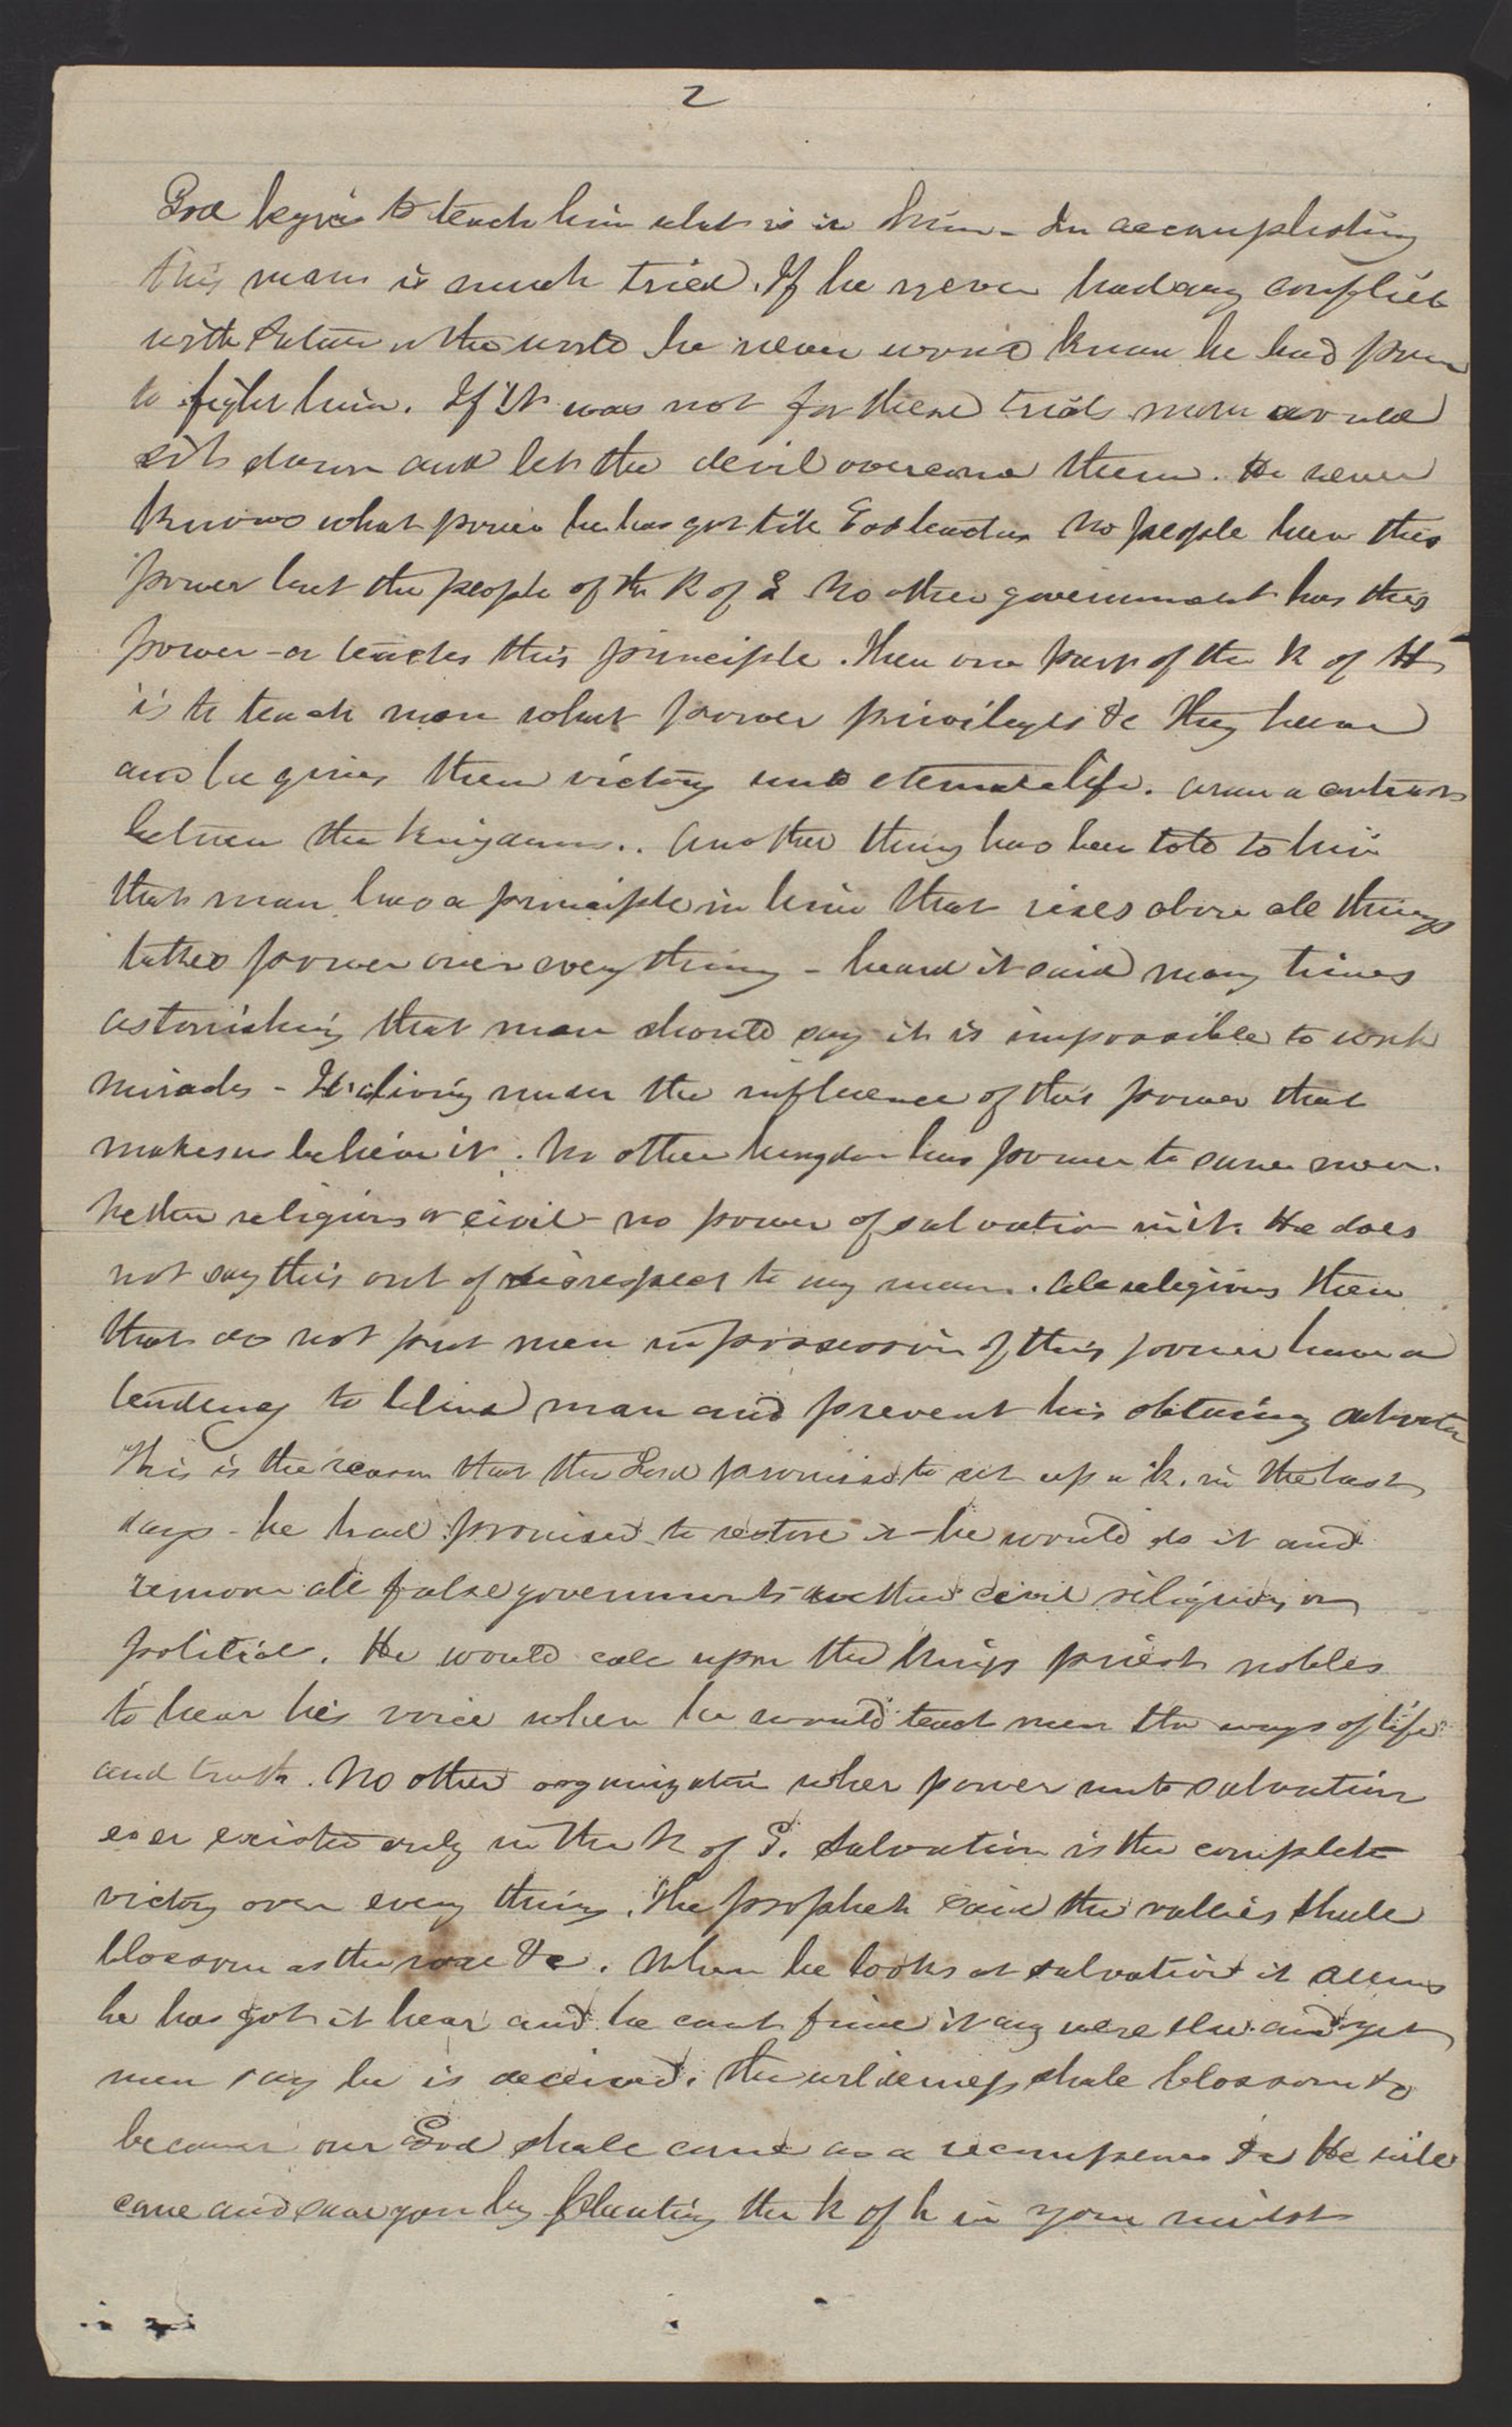 2
God begins to teach him what is in him - In accomplishing
this man is much tried. If he never had any conflict
with Satan or the world he never would know he had power
to fight him. If it was not for these trials men would
sit down and let the devil overcome them. He never
knows what power he has got till God teaches No people have this
power but the people of the K of G No other government has this
power - or teaches this principle. Then one part of the K of H
is to teach man what power privileges &c they have
and he gives them victory unto eternal life. a contrast
between the kingdoms.. Another thing has been told to him
that man has a principle in him that rises above all things
takes power over every thing - heard it said many times
astonishing that man should say it is impossible to work
miracles - It is living under the influence of this power that
makes us believe it. No other kingdom has power to save men.
neither religious or civil - no power of salvation in it. He does
not say this out of disrespect to any man. All religions then
that do not put men in possession of this power have a
tendency to blind man and prevent his obtaining salvation
This is the reason that the Lord promised to set up a k. in the last
days - he had promised to restore it - he would do it and
remove all false governments whether civil religious or
political. He would call upon the kings priests nobles
to hear his voice when he would teach men the ways of life
and truth. No other organization wher power unto salvation
ever existed only in the K of G. Salvation is the complete
victory over every thing. The prophet said the vallies shall
blossom as the rose &c. When he looks at salvation it seems
he has got it hear and he cant find it any were else and yet
men say he is deceived. The wilderness shall blossom &c
because our God shall come as a recompense &c He will
come and save you by planting the k of h in your midst